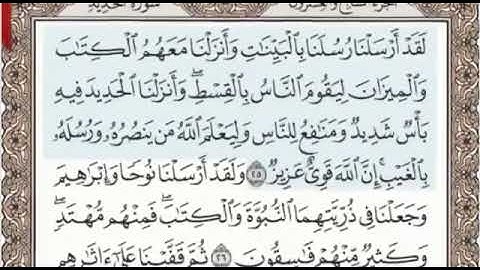 الجزء السابع والعشرون سورة الحديد
لَقَدْ أَرْسَلْنَا رُسُلَنَا بِالْبَيِّنَاتِ وَأَنزَلْنَا مَعَهُمُ الْكِتَابَ
وَالْمِيزَانَ لِيَقُومَ النَّاسُ بِالْقِسْطِ ۖ وَأَنزَلْنَا الْحَدِيدَ فِيهِ
بَأْسٌ شَدِيدٌ وَمَنَافِعُ لِلنَّاسِ وَلِيَعْلَمَ اللَّهُ مَن يَنصُرُهُ وَرُسُلَهُ
بِالْغَيْبِ ۚ إِنَّ اللَّهَ قَوِيٌّ عَزِيزٌ ٢٥ وَلَقَدْ أَرْسَلْنَا نُوحًا وَإِبْرَاهِيمَ
وَجَعَلْنَا فِي ذُرِّيَّتِهِمَا النُّبُوَّةَ وَالْكِتَابَ ۖ فَمِنْهُم مُّهْتَدٍ ۖ
وَكَثِيرٌ مِّنْهُمْ فَاسِقُونَ ٢٦ ثُمَّ قَفَّيْنَا عَلَىٰ آثَارِهِم